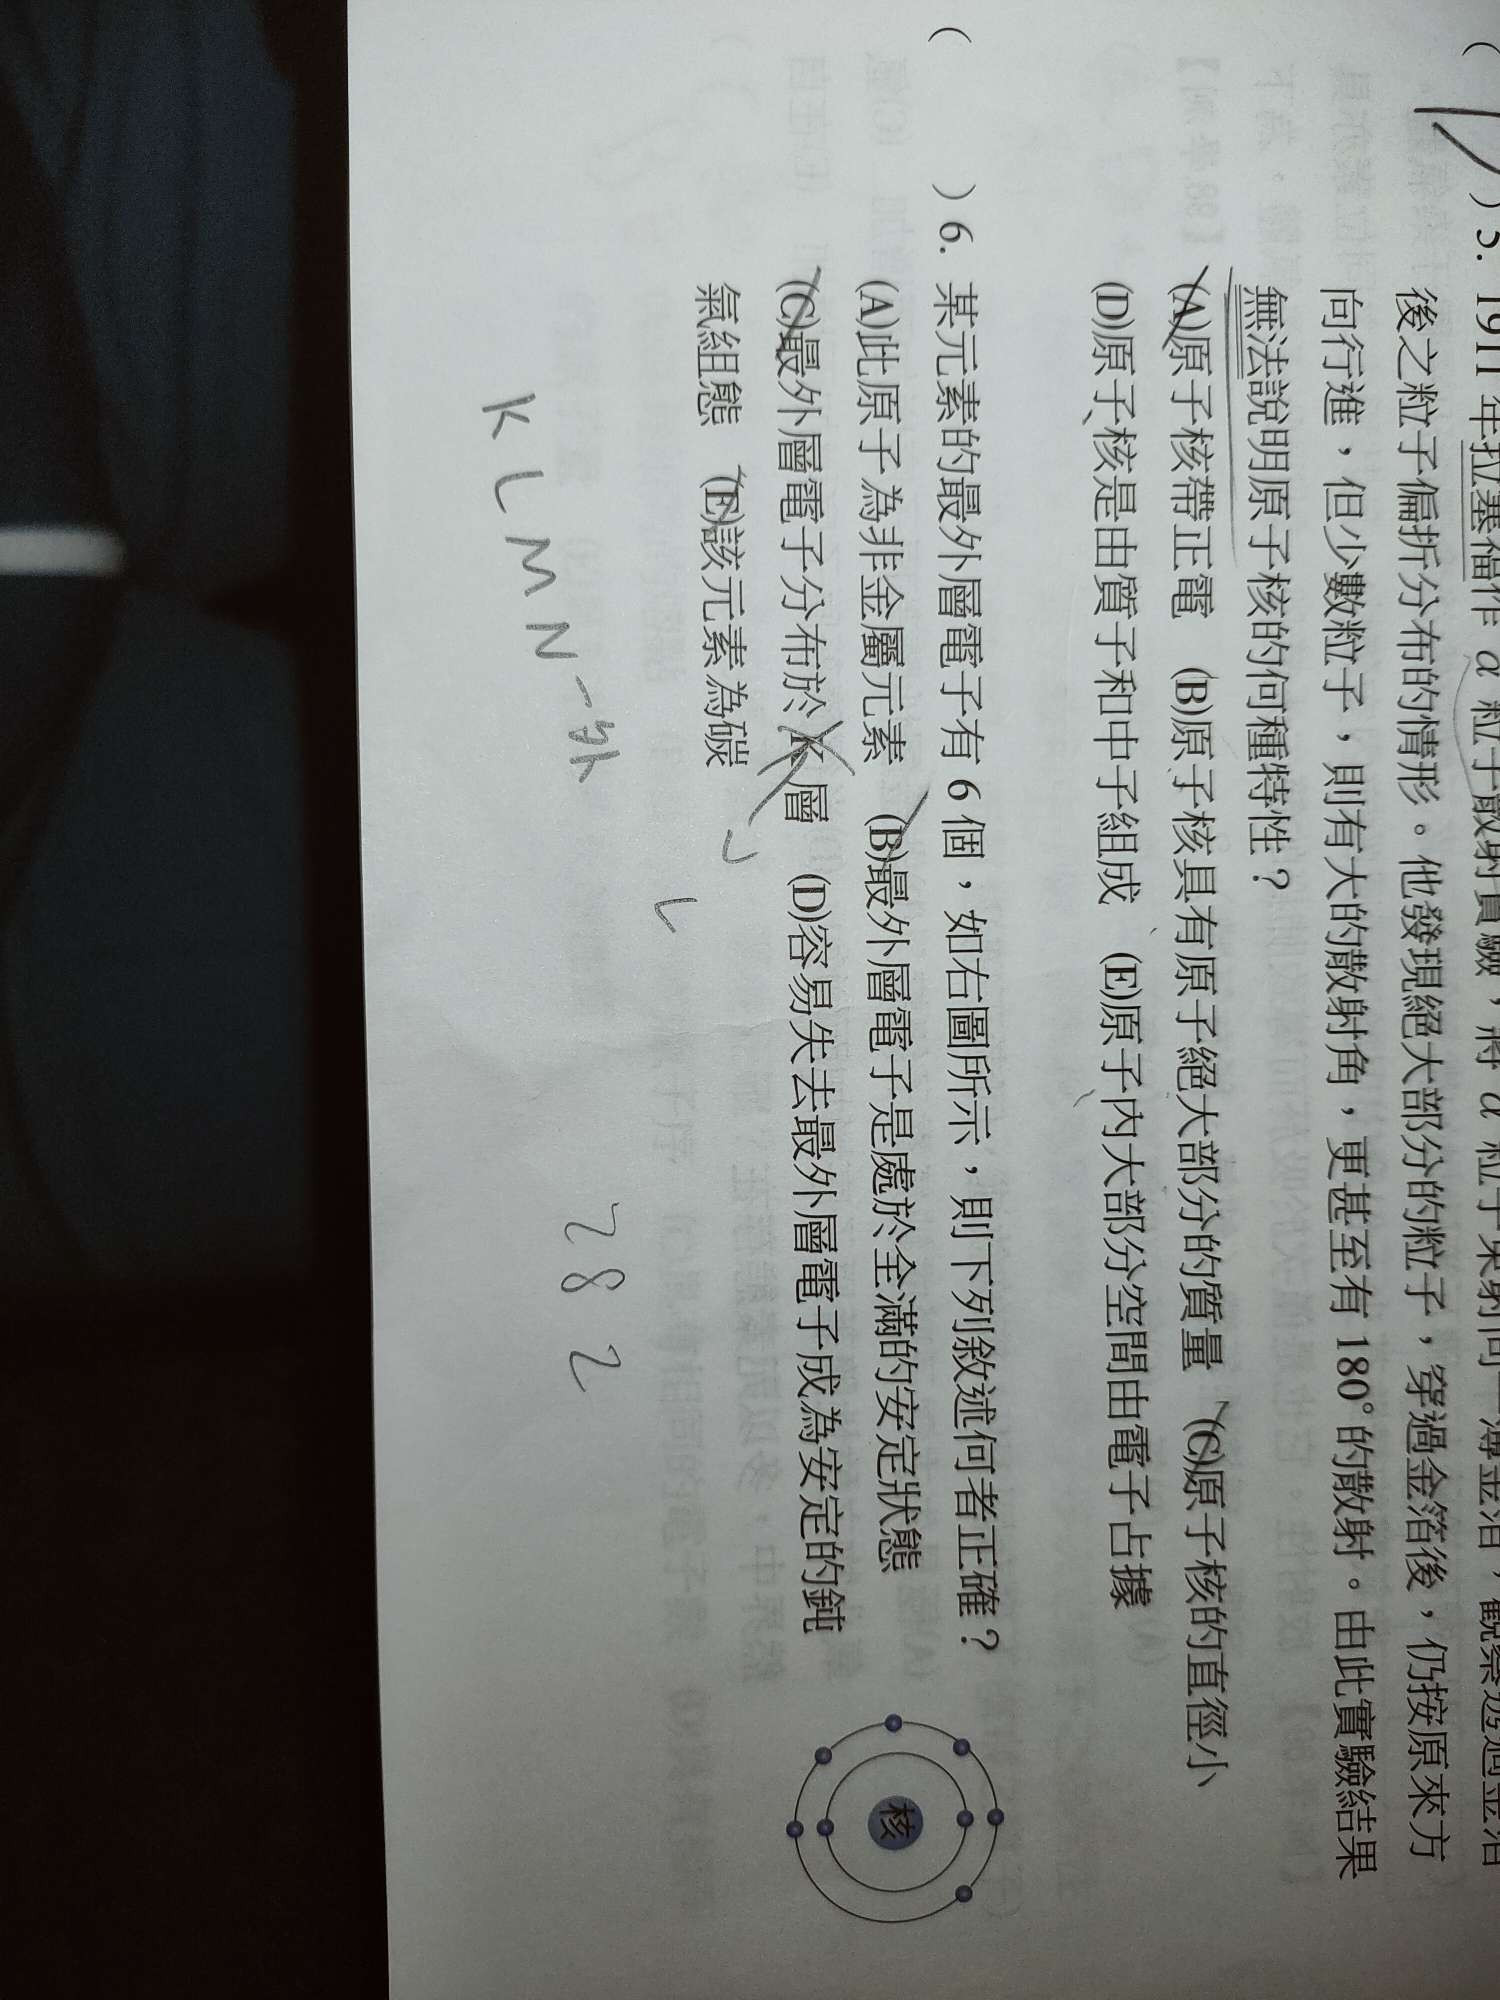 )5. 1911 年拉塞福作 α 粒子散射實驗，將 α 粒子束射向一薄金箔，觀察透過金箔
後之粒子偏折分布的情形。他發現絕大部分的粒子，穿過金箔後，仍按原來方
向行進，但少數粒子，則有大的散射角，更甚至有 180° 的散射。由此實驗結果
無法說明原子核的何種特性？
(A)原子核帶正電 (B)原子核具有原子絕大部分的質量 (C)原子核的直徑小
(D)原子核是由質子和中子組成 (E)原子內大部分空間由電子占據
( )6. 某元素的最外層電子有 6 個，如右圖所示，則下列敘述何者正確？
(A)此原子為非金屬元素 (B)最外層電子是處於全滿的安定狀態
(C)最外層電子分布於 K 層 (D)容易失去最外層電子成為安定的鈍
氣組態 (E)該元素為碳
核
L
K L M N → 外
2 8 2